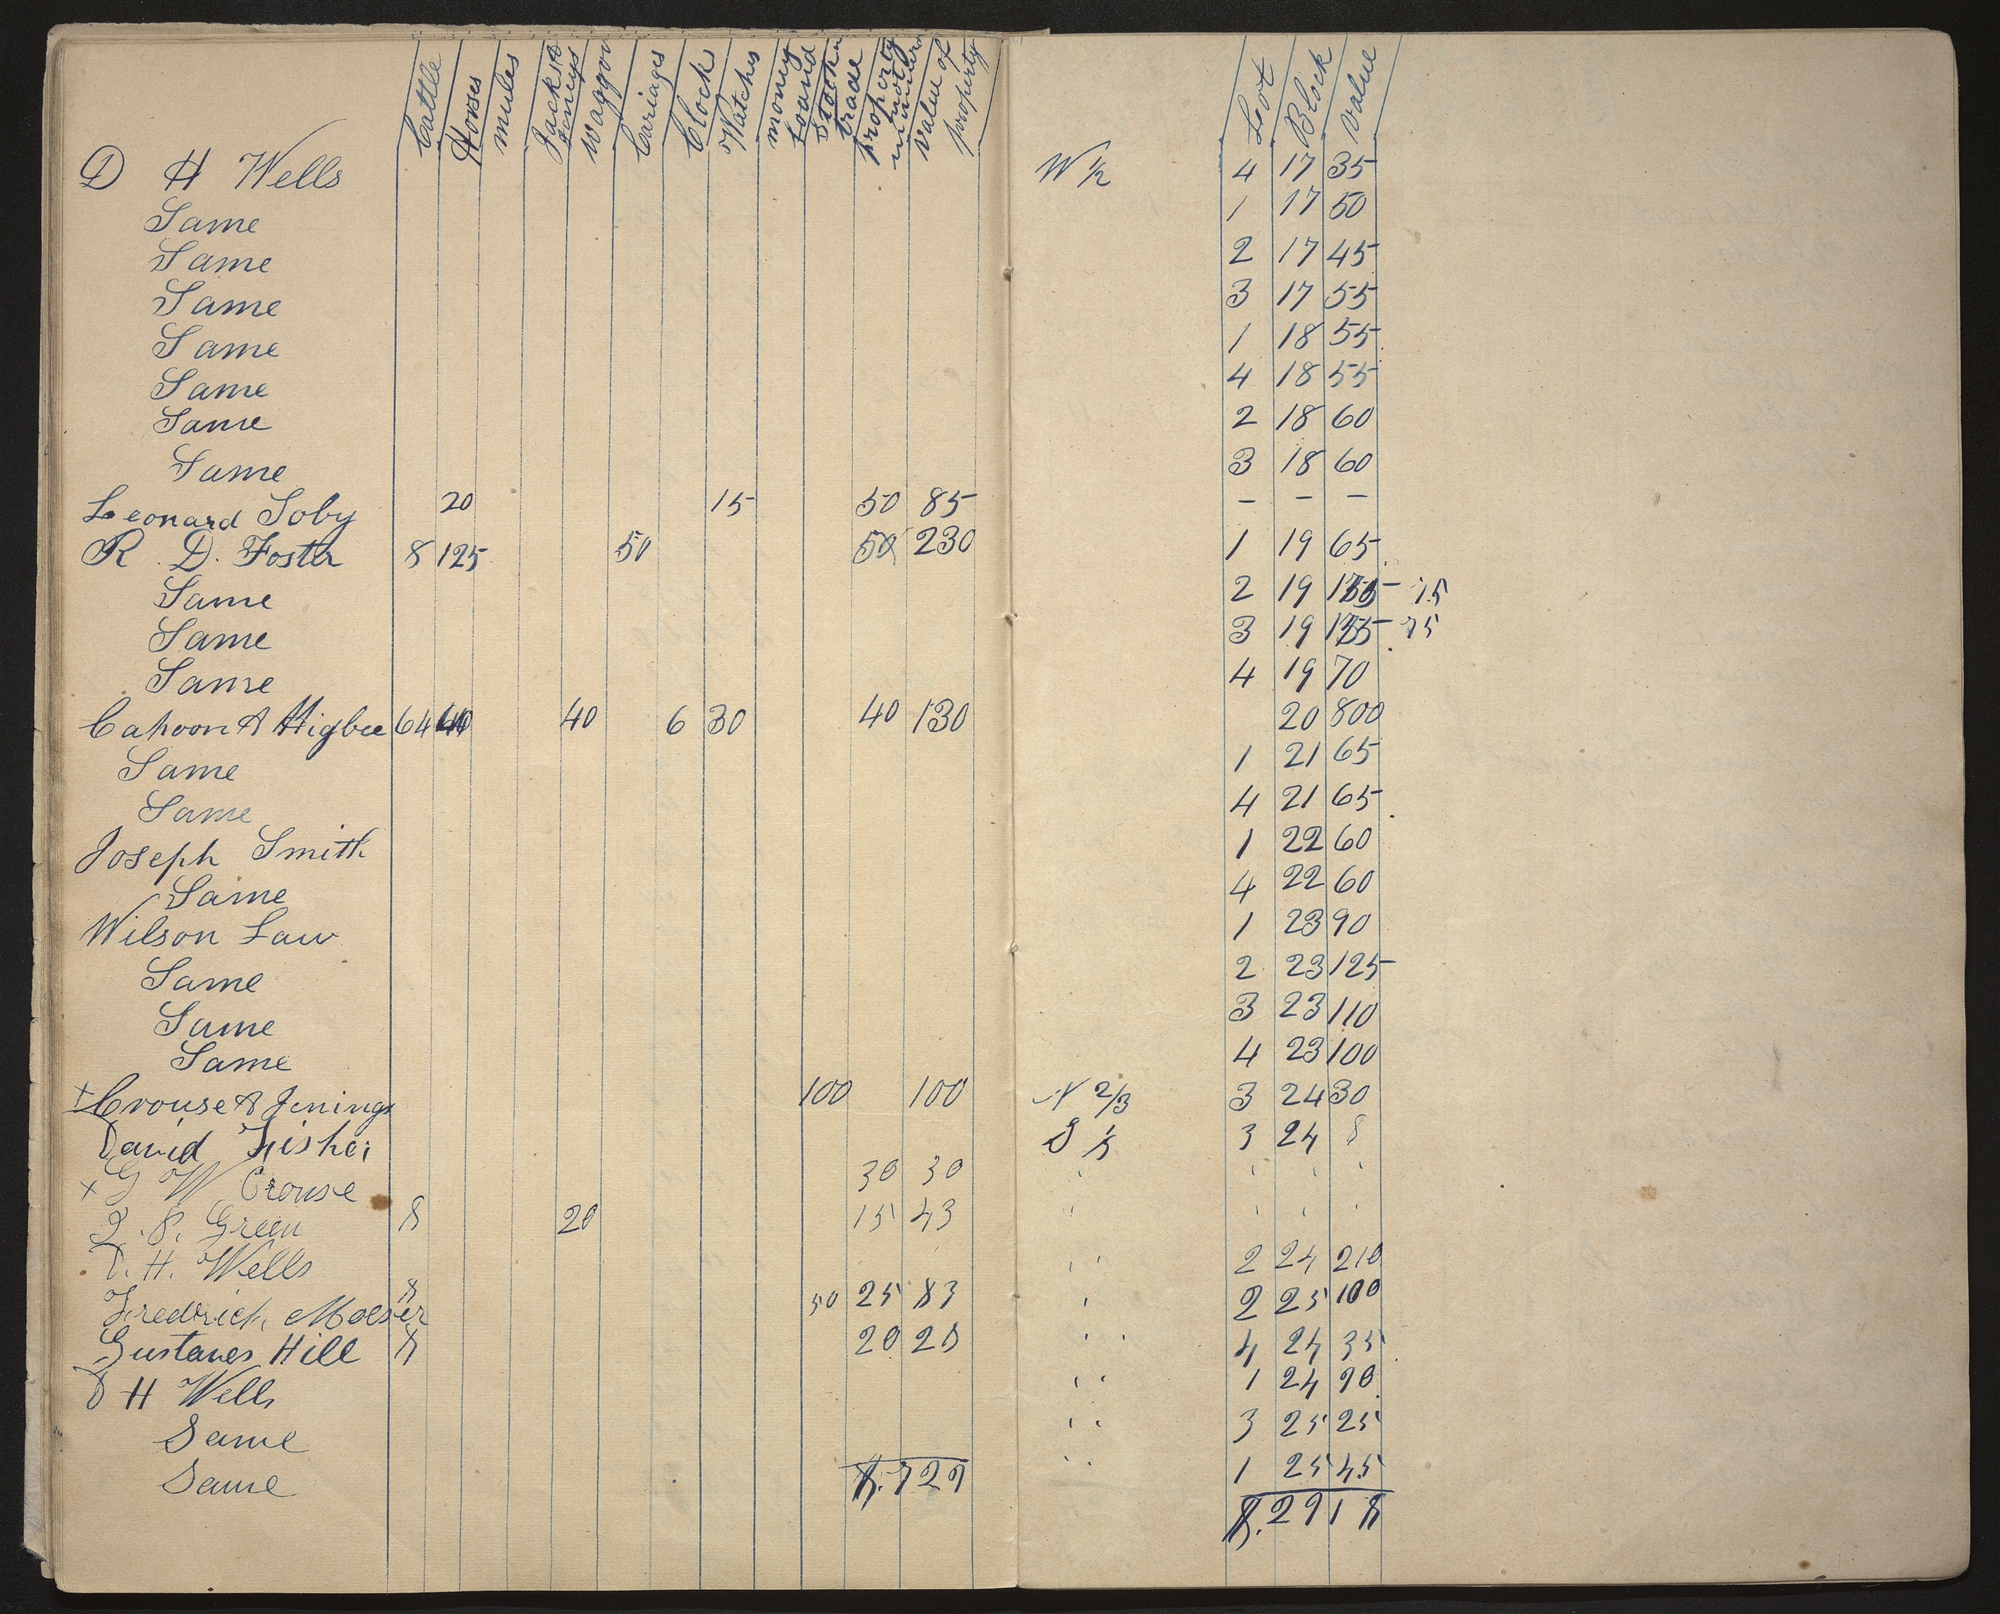 Cattle Horses mules Jacks & Jennys Waggon Cariages Clock Watches money Loand Stock in trade property not innumbra value of property Lot Block Value
D H Wells W 1/2 4 17 35
Same 1 17 50
Same 2 17 45
Same 3 17 55
Same 1 18 55
Same 4 18 55
Same 2 18 60
Same 3 18 60
Leonard Soby 20 15 50 85 — — —
R. D. Foster 8 125 50 50 230 1 19 65
Same 2 19 75
Same 3 19 75
Same 4 19 70
Cahoon & Higbee 64 40 40 6 30 40 130 20 800
Same 1 21 65
Same 4 21 65
Joseph Smith 1 22 60
Same 4 22 60
Wilson Law 1 23 90
Same 2 23 125
Same 3 23 110
Same 4 23 100
+ Crouse & Jenings 100 100 N 2/3 3 24 30
David Fisher S 1/3 3 24 8
x G W Crouse 30 30
8 20 15 43
D. H. Wells 2 24 210
Fredrick Moeser 8 50 25 83 2 25 100
Gustaves Hill 8 20 28 4 24 35
D H Wells 1 24 90
Same 3 25 25
Same 1 25 45
$.729 $.2918